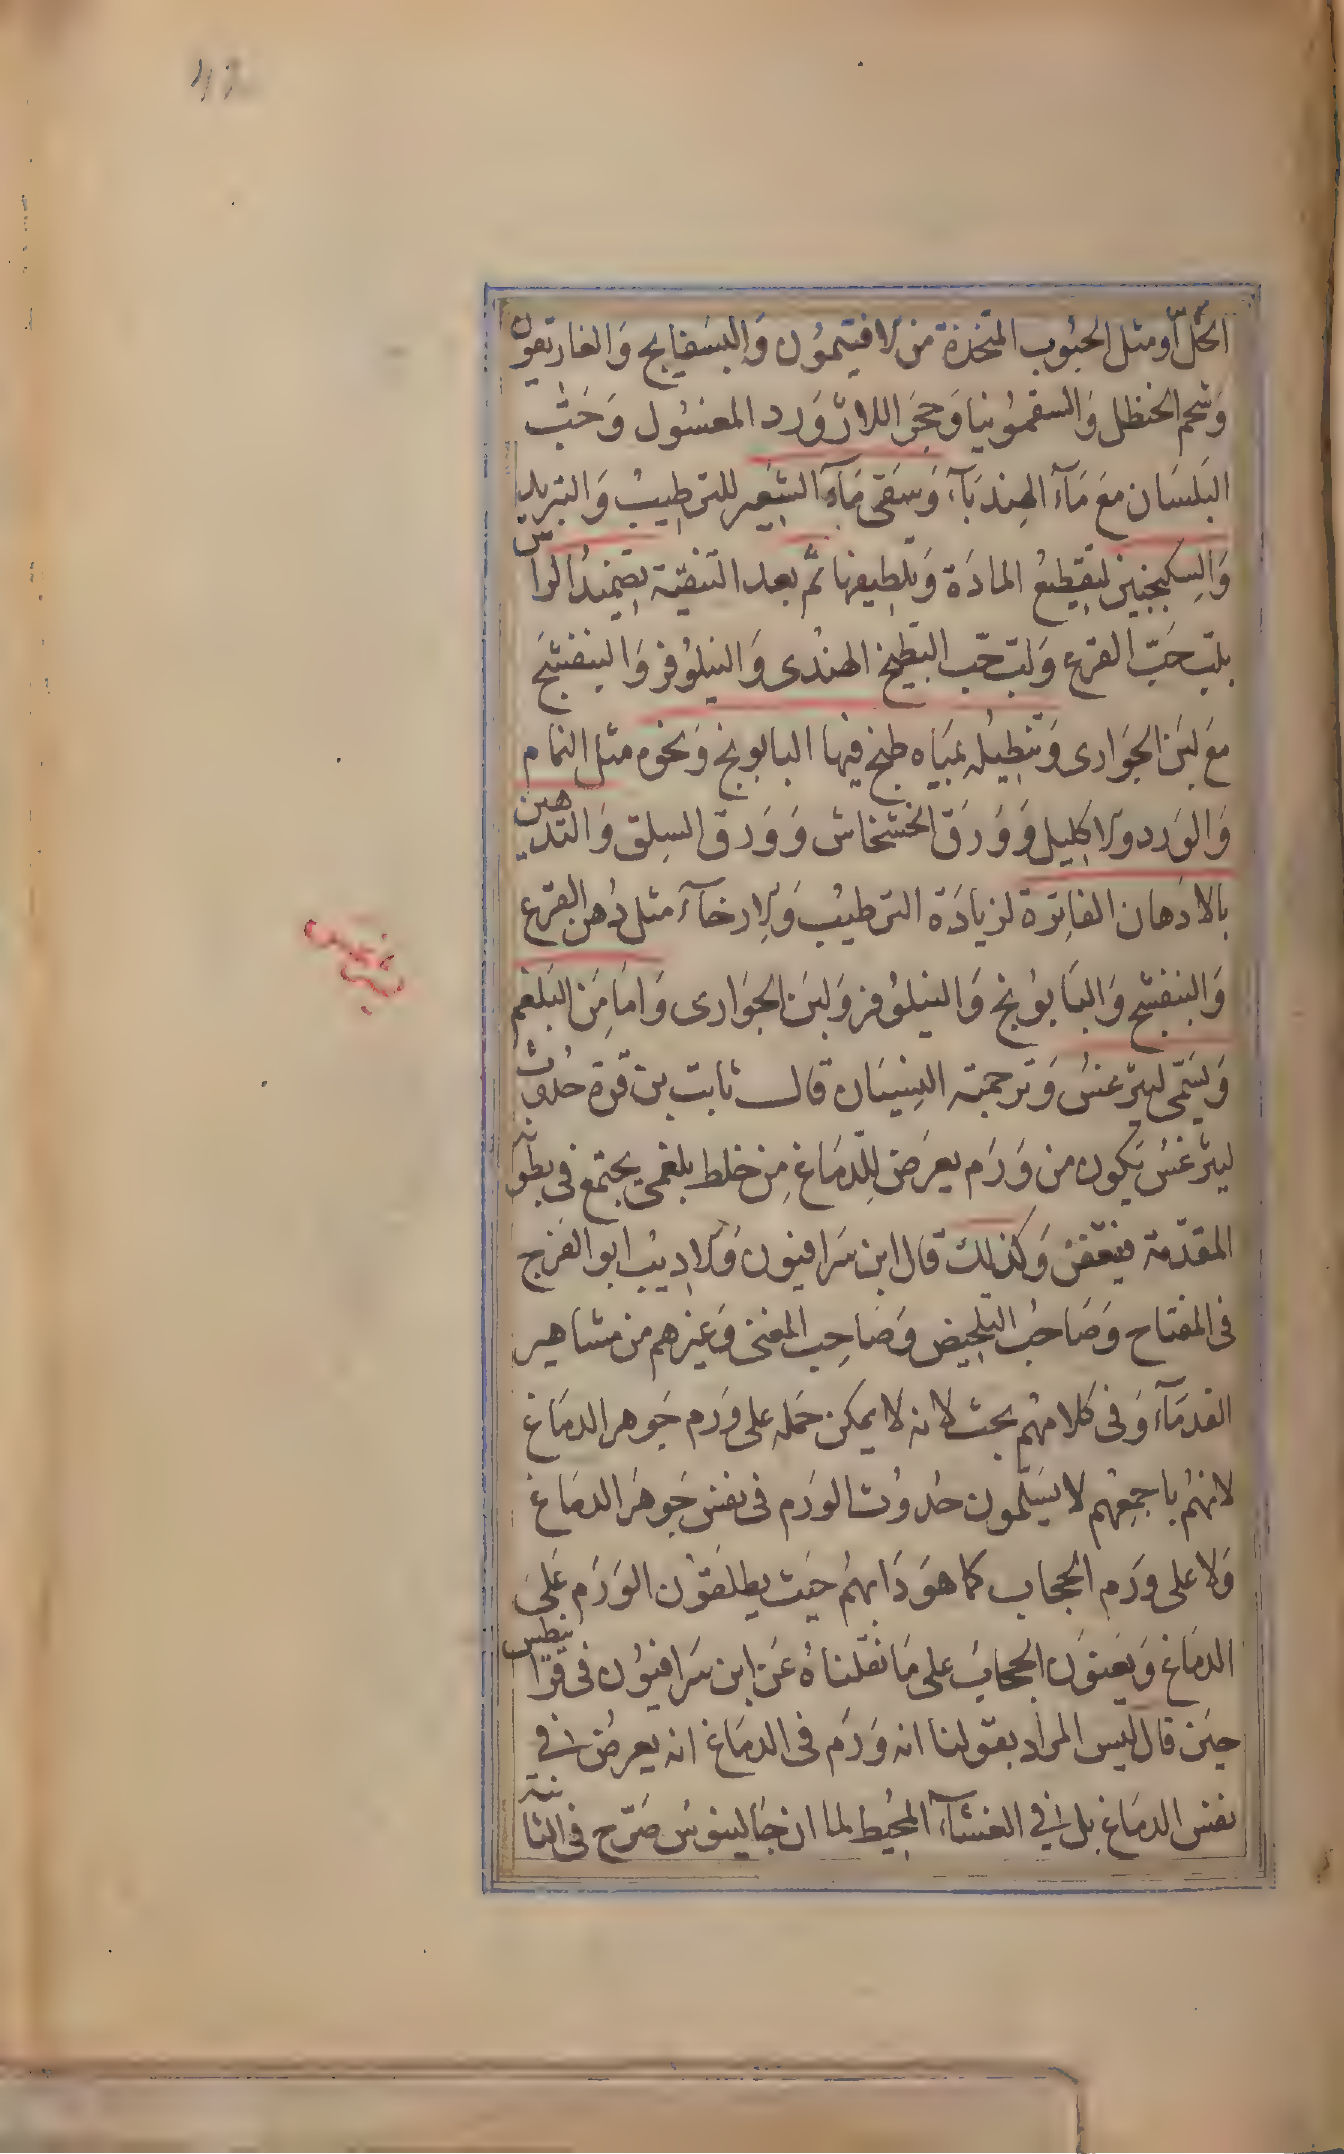 الخل أو مثل الحبوب المتخذة من الافتيمون وَالبسفايج وَالغاريقون
وَشحم الحنظل وَالسقمونيا وَحجَر اللازوَرد المغسُول وَحَبّ
البَلسَان مَعَ مَآء الهِندبَآء وَسَقى مَآء الشعِير للترطِيبُ وَالتبريد
وَالسِكنجبين لتقِطيعُ المادَة وَتلطِيفها ثمَّ بعد التنقيَة بضِميدُ الراس
بلبّ حَبّ القرع وَلبّ حَبّ البَطِيخ الهندُى وَالنيلوُفر وَالبنفشَج
مَعَ لبَن الجوَارى وَتنطِيلُه بمَيَاه طبخ فيها البابونج وَنحوه مثل النمام
وَالوَرد والاكليل وَوَرَق الخشخاش وَوَرق السِلق وَالتدهين
بالادهان الفاتِرة لزيادَة الترطيبُ وَالارخآء مثل دُهن القرع
وَالبنفشج وَالبَابوُنج وَالنيلوُفر وَلبَن الجوَارى وَامَا مِن البَلغم
وَيسَمّى ليثرغسُ وَترجمته النِسيَان قال ثابت بن قرة حدُوث
ليثرغسُ يَكون من وَرَم يعرَض للدمَاغ مِن خلط بلغمى يجتمع فى بطونه
المقدّمة فيتعفن وَكذلك قال ابن سَرافيون وَالاديبُ ابو الفرج
فى المفتاح وَصَاحبُ التلخيص وَصَاحِب المغنى وَغيرهم من مشاهير
القدمَآء وَفى كلامهُم بحث لانه لا يمكن حَمله على وَرَم جَوهر الدمَاغ
لانهُم باجمعِهُم لا يسَلمون حُدوُث الورَم فى نفس جَوهَر الدمَاغ
وَلا على ورَم الحجاب كما هوَ دَابهُم حيَث يطلقوُن الوَرَم عَلىَ
الدمَاغ وَيَعنوَن الحجَابَ على مَا نقلناهُ عَن ابن سَرافيوُن فى قرانيطس
حيَن قال ليس المراد بقولنا انه وَرَم فى الدمَاغ انه يعرضُ فى
نفس الدمَاغ بل فى الغشآء المحِيط لما ان جَالينوسُ صَرّح فى الثانية